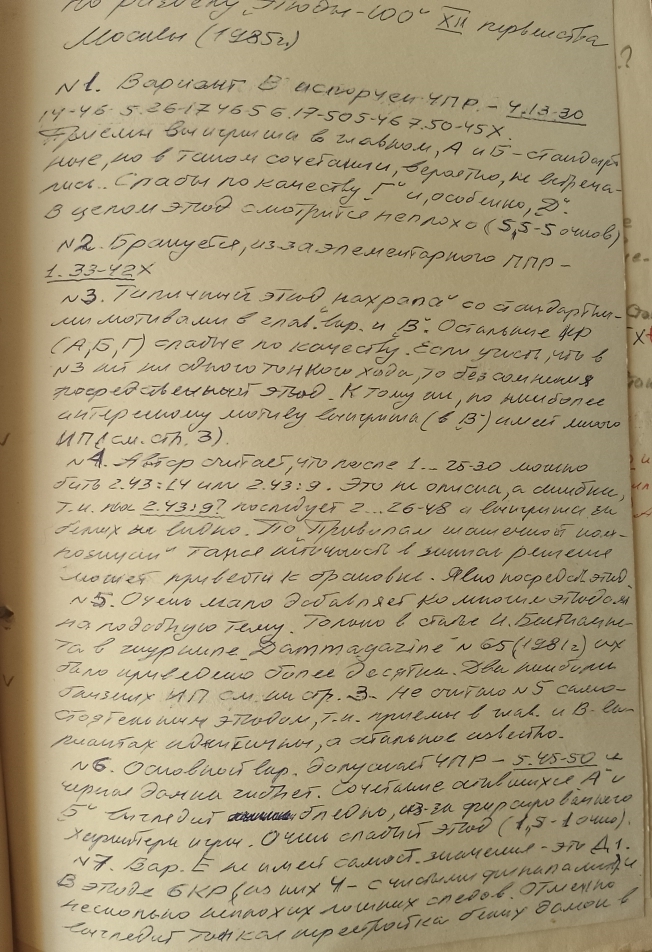 по разделу „Этюды-100" XII первенства
Москвы (1985г)
N1. Вариант В испорчен ЧПР. – 4.13-30
14-46 5.26-17 46-5 6.17-50 5-46 7.50-45X.
Приёмы выигрыша в главном, А и Б – стандарт
ные, но в таком сочетании, вероятно, не встреча-
лись. Слабы по качеству „Г" и, особенно, „Д".
В целом этюд смотрится неплохо (5,5-5 очков)
N2. Бракуется, из-за элементарного ППР –
1. 33-42X
N3. Типичный этюд „нахрапа" со стандартны-
ми мотивами в глав. вар. и „В". Остальные КР
(А, Б, Г) слабые по качеству. Если учесть, что в
N3 нет ни одного тонкого хода, то без сомнения
посредственный этюд. К тому же, по наиболее
интересному мотиву выигрыша (в В) имеет много
ИП (см. стр. 3).
N4. Автор считает, что после 1... 25-30 можно
бить 2.43:14 или 2.43:9. Это не описка, а ошибка,
т.к. на 2.43:9? последует 2...26-48 и выигрыша за
белых не видно. По „Правилам шашечной ком-
позиции" такая неточность в записи решения
может привести к браковке. Явно посредств. этюд.
N5. Очень мало добавляет ко многим этюдам
на подобную тему. Только в статье И. Бастиаане-
та в журнале „Dammagazine" N 65 (1981г) их
было приведено более десятка. Два наиболее
близких ИП см. на стр. 3. Не считаю N5 само-
стоятельным этюдом, т.к. приёмы в глав. и В ва-
риантах идентичны, а остальное известно.
N6. Основной вар. допускает ЧПР – 5.45-50 и
черная дамка гибнет. Сочетание оставшихся А и
Б выглядит бледно, из-за форсированного
характера игры. Очень слабый этюд (1,5-1 очко).
N7. Вар. Е не имеет самост. значения – это Д1.
В этюде 6 КР (из них 4 – с чистыми финалами) и
несколько неплохих ложных следов. Отменно
выглядит тонкая перестройка белых дамок в